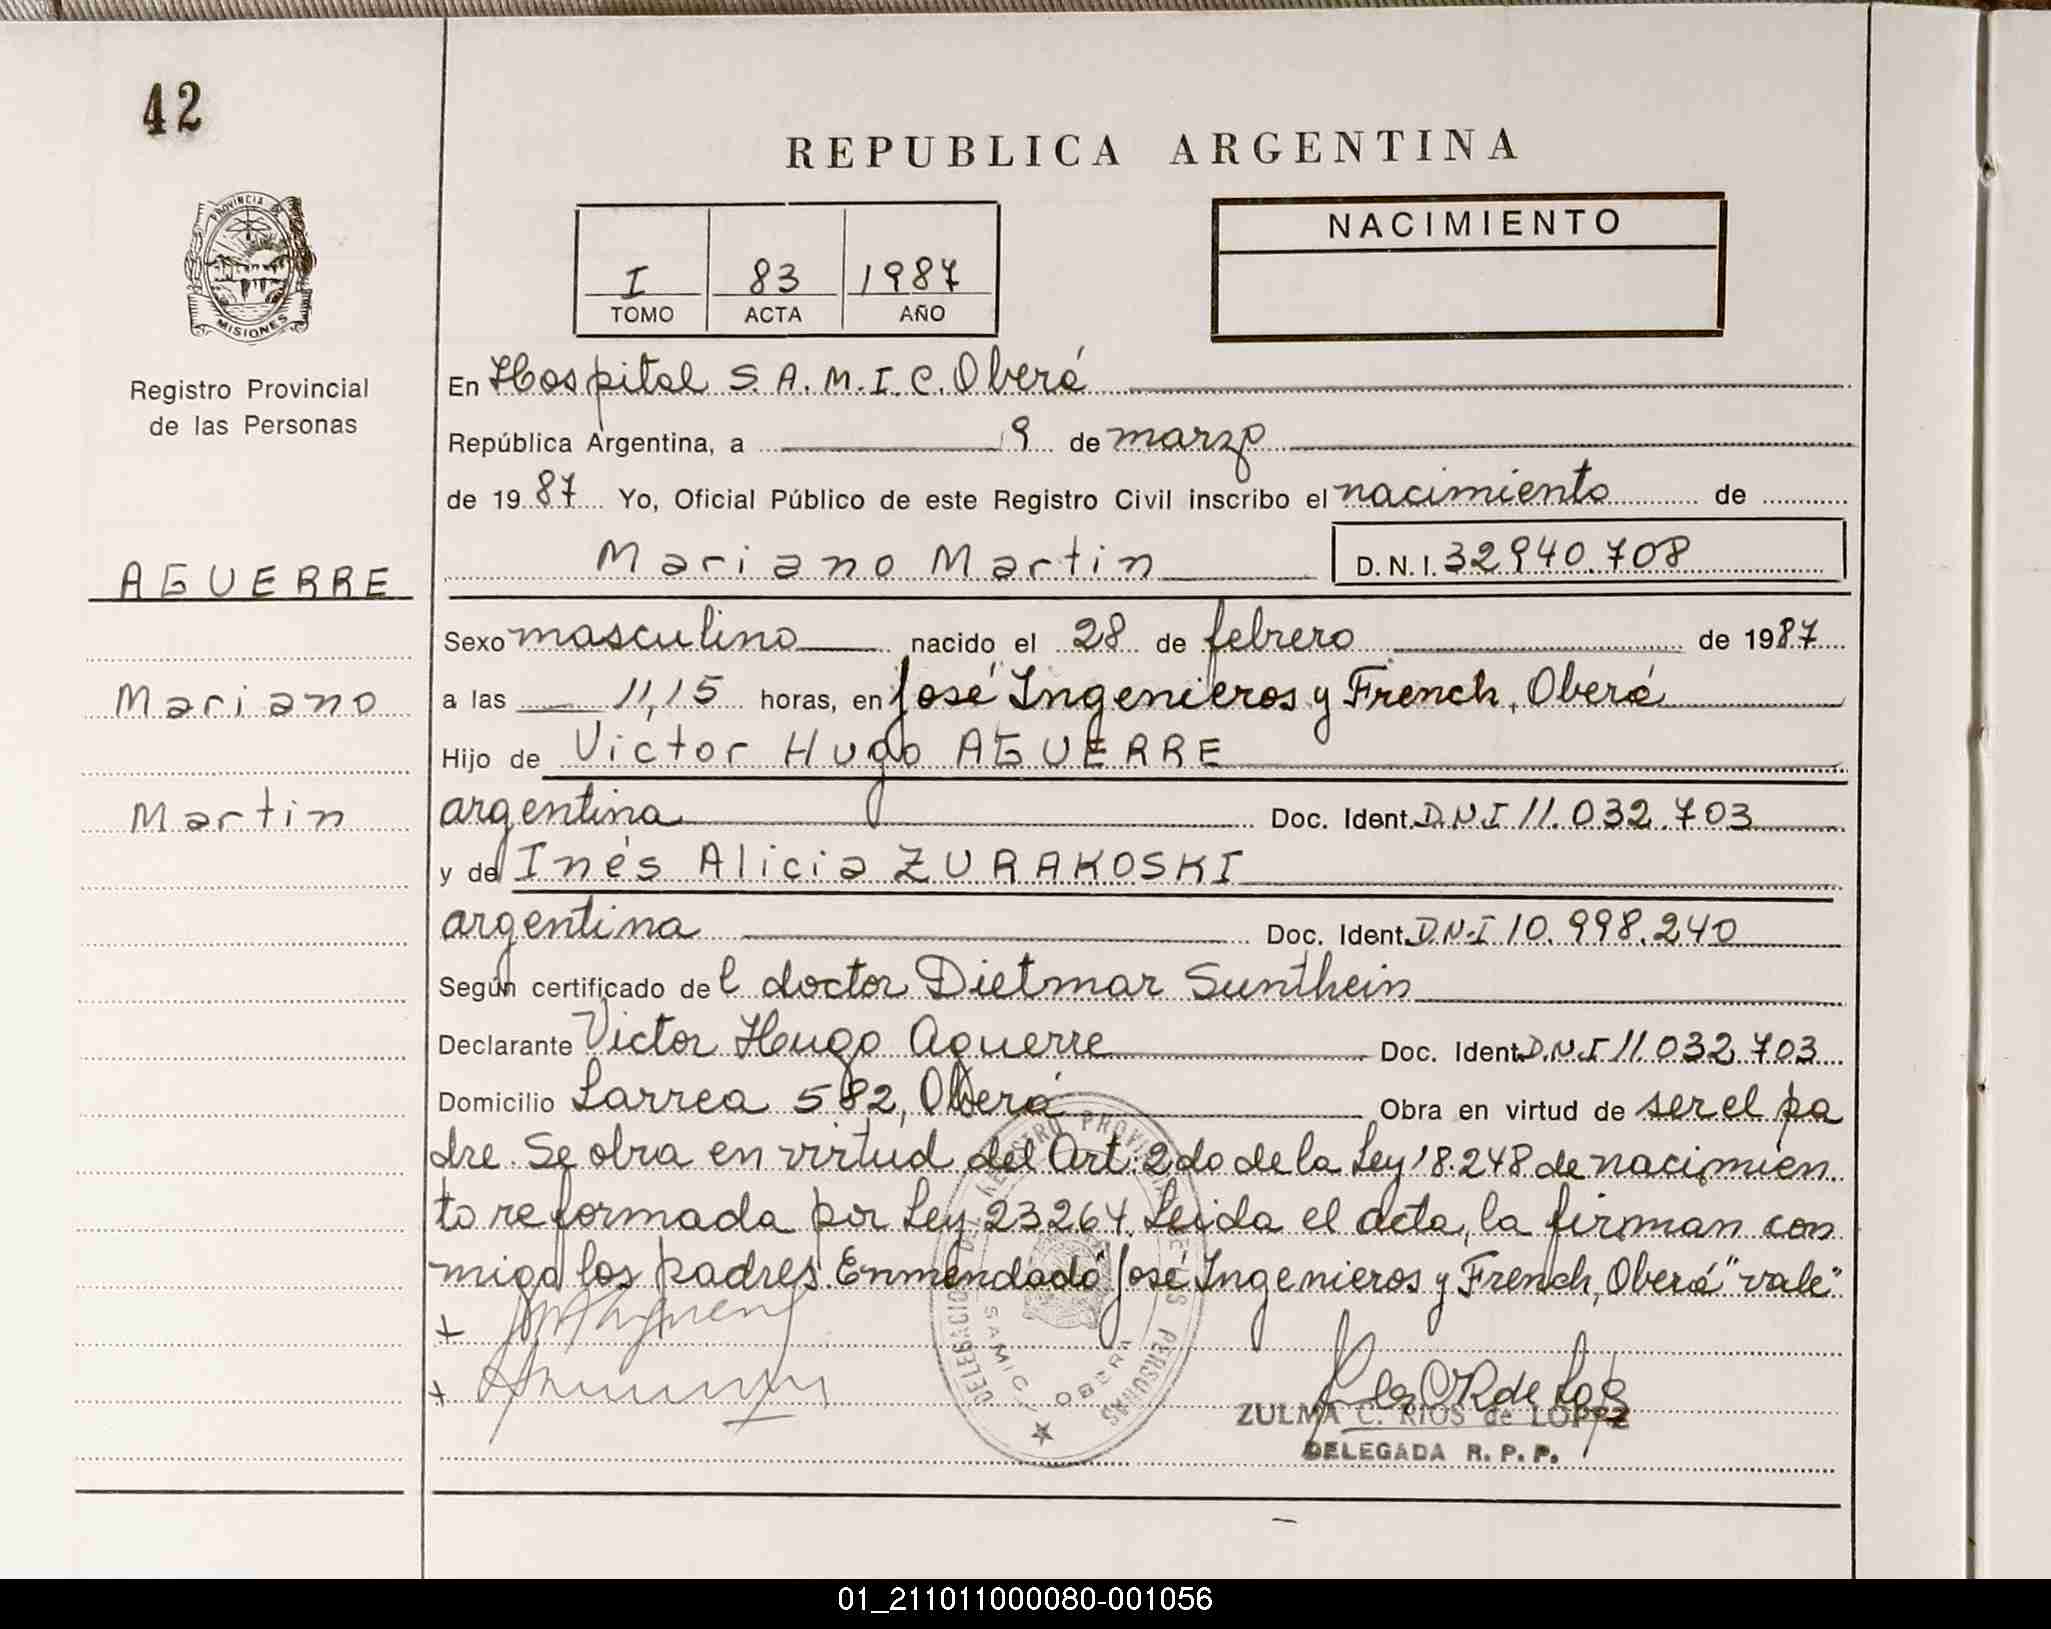 42
REPUBLICA ARGENTINA
PROVINCIA DE
MISIONES
Registro Provincial
de las Personas
I 83 1987
TOMO ACTA AÑO
NACIMIENTO
En Hospital S.A.M.I.C. Oberá
República Argentina, a 9 de marzo
de 1987 Yo, Oficial Público de este Registro Civil inscribo el nacimiento de
AGUERRE
Mariano Martin D.N.I. 32940.708
Sexo masculino nacido el 28 de febrero de 1987
Mariano
a las 11,15 horas, en José Ingenieros y French, Oberá
Hijo de Victor Hugo AGUERRE
Martin
argentina Doc. Ident. D.N.I 11.032.703
y de Inés Alicia ZURAKOSKI
argentina Doc. Ident. D.N.I 10.998.240
Según certificado del doctor Dietmar Sunthein
Declarante Victor Hugo Aguerre Doc. Ident. D.N.I 11.032.703
Domicilio Larrea 582, Oberá Obra en virtud de ser el pa
dre. Se obra en virtud del Art. 2do de la Ley 18.248 de nacimien
to reformada por Ley 23264. Leida el acta, la firman con
migo los padres. Enmendado "José Ingenieros y French, Oberá" "vale"
DELEGACION DEL REGISTRO PROVINCIAL DE LAS PERSONAS
SAMIC - OBERA
ZULMA C. RIOS de LOPEZ
DELEGADA R. P. P.
01_211011000080-001056